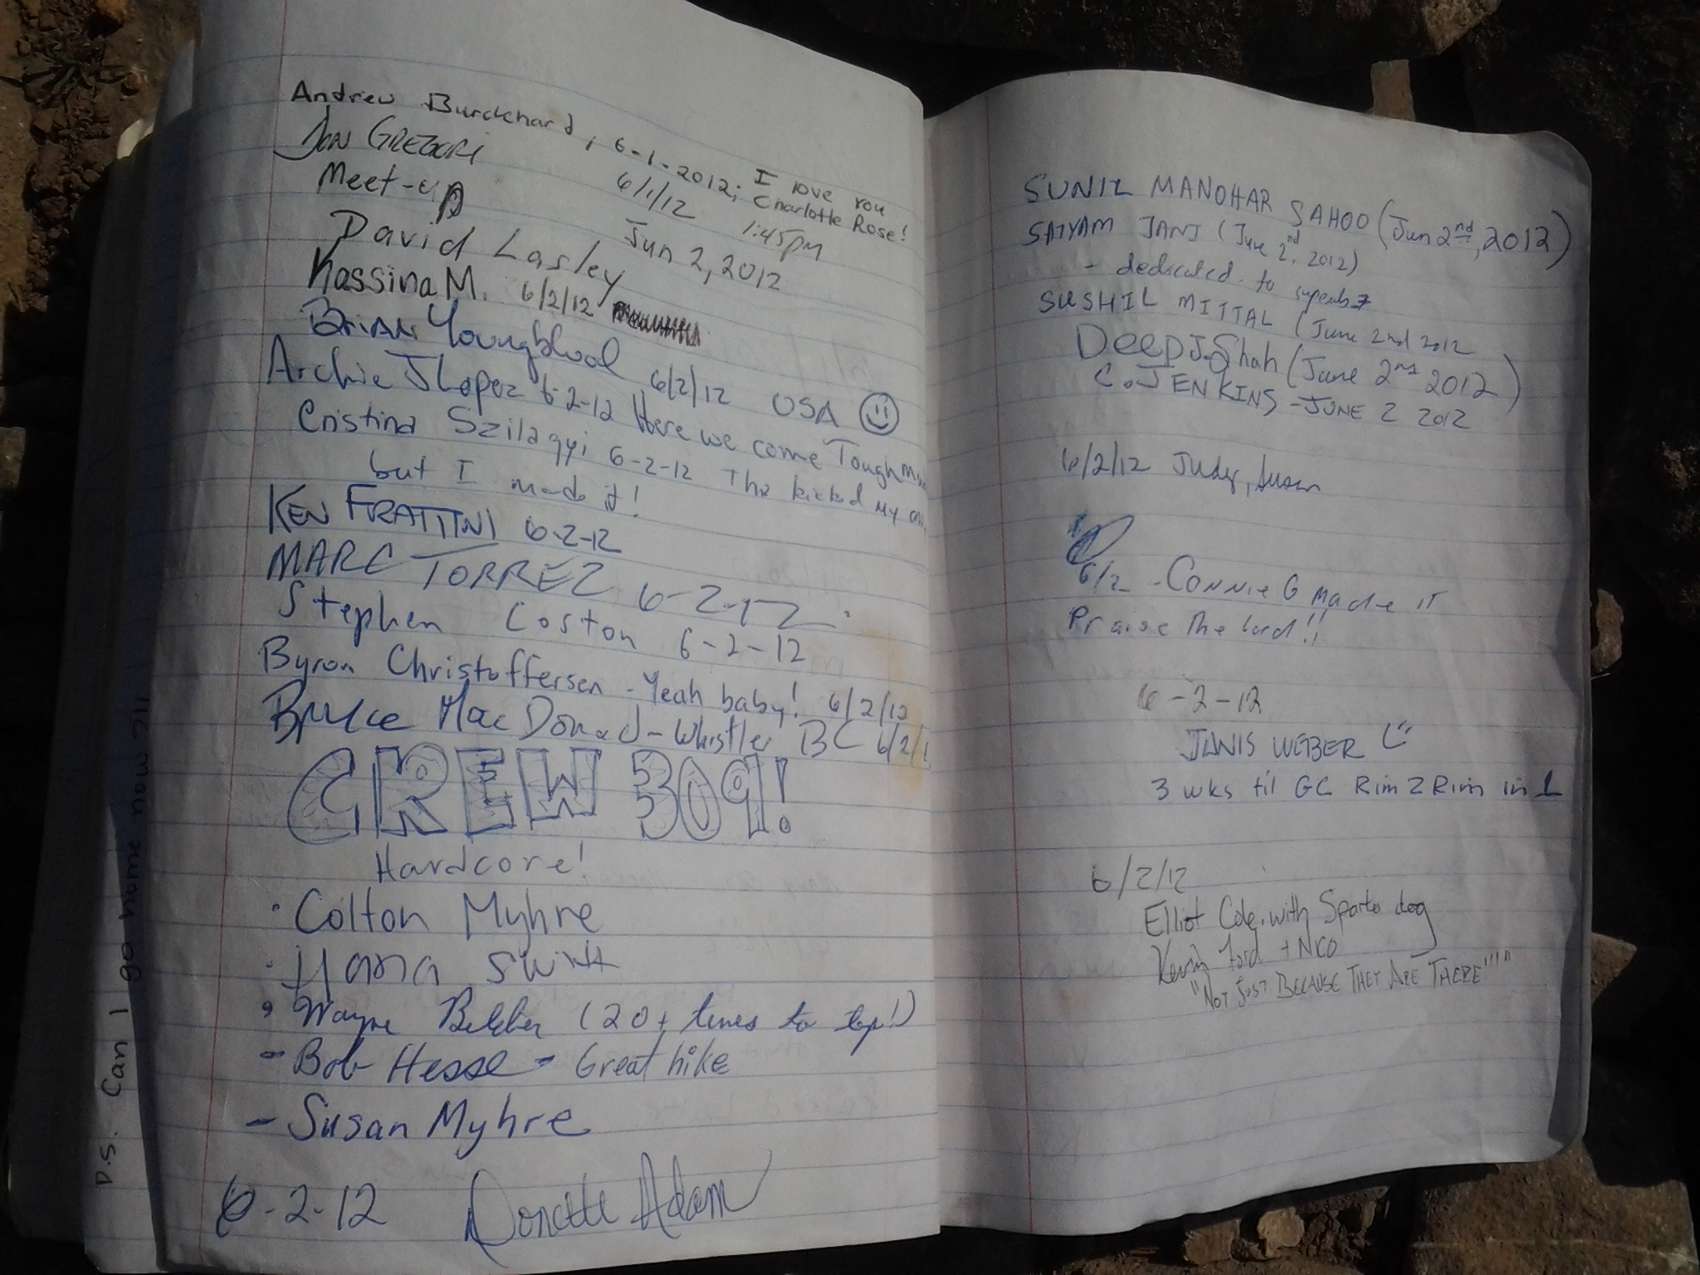 Andrew Burckhard, 6-1-2012; I love you! Charlotte Rose!
Jon GREGORI 6/1/12 1:45pm
Meet-up Jun 2, 2012
David Lasley
Hassina M. 6/2/12
Brian Youngblood 6/2/12 USA
Archie J Lopez 6-2-12 Here we come Tough
Cristina Szilagyi 6-2-12 The kicked my
but I made it!
KEN FRATTINI 6-2-12
MARC TORREZ 6-2-12
Stephen Coston 6-2-12
Byron Christoffersen - Yeah baby! 6/2/12
Bruce MacDonald - Whistler BC 6/2/1
CREW 309!
Hardcore!
• Colton Myhre
• Hana Swift
• Wayne (20+ times to top!)
- Bob Hesse - Great hike
- Susan Myhre
6-2-12 Donette Adam
P.S. Can I go home now
SUNIL MANOHAR SAHOO (Jun 2nd, 2012)
SATYAM JANI (June 2nd, 2012)
- dedicated to
SUSHIL MITTAL (June 2nd 2012
Deep J. Shah (June 2nd 2012)
C. JENKINS - JUNE 2 2012
6/2/12 Judy, Susan
6/2 - Connie G made it
Praise The Lord!!
6-2-12
JANIS WEBER
3 wks til GC Rim 2 Rim in 1
6/2/12
Elliot Cole, with Sparto dog
Kevin Ford + NICO
"NOT JUST BECAUSE THEY ARE THERE"